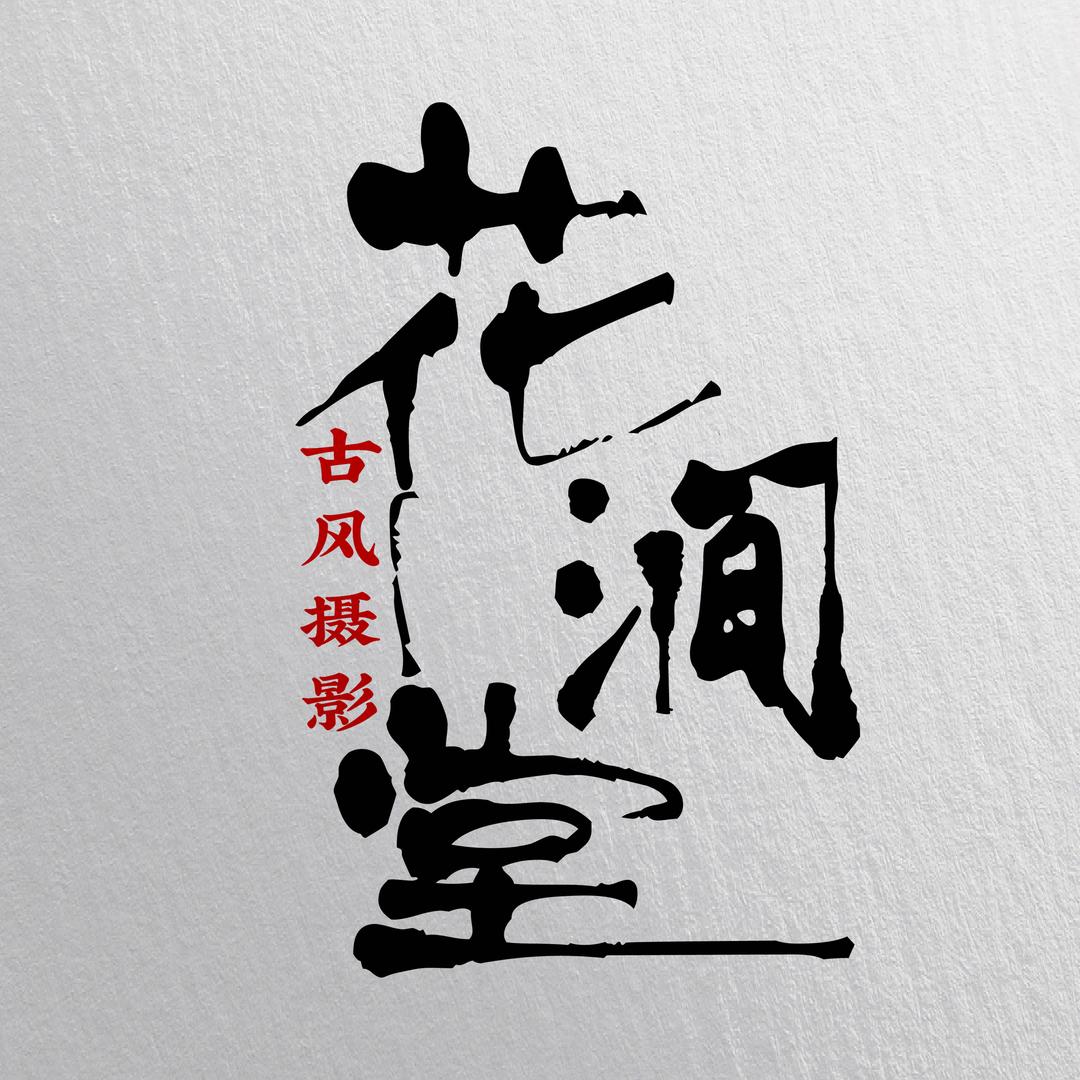 花涧堂
古风摄影